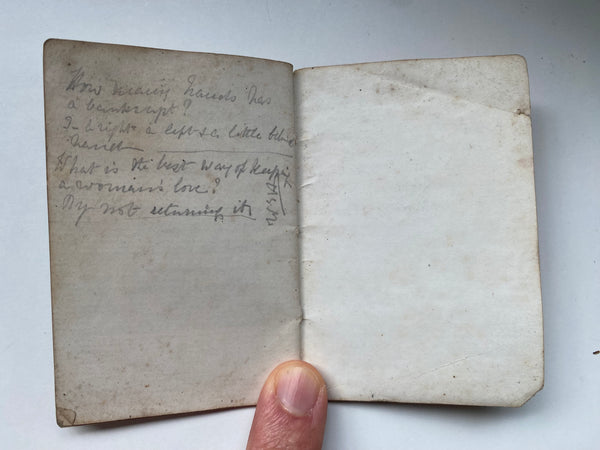 How many hands has
a bankrupt?
3 - a right a left & a little behind
hand
What is the best way of keeping
a woman's love?
By not returning it.